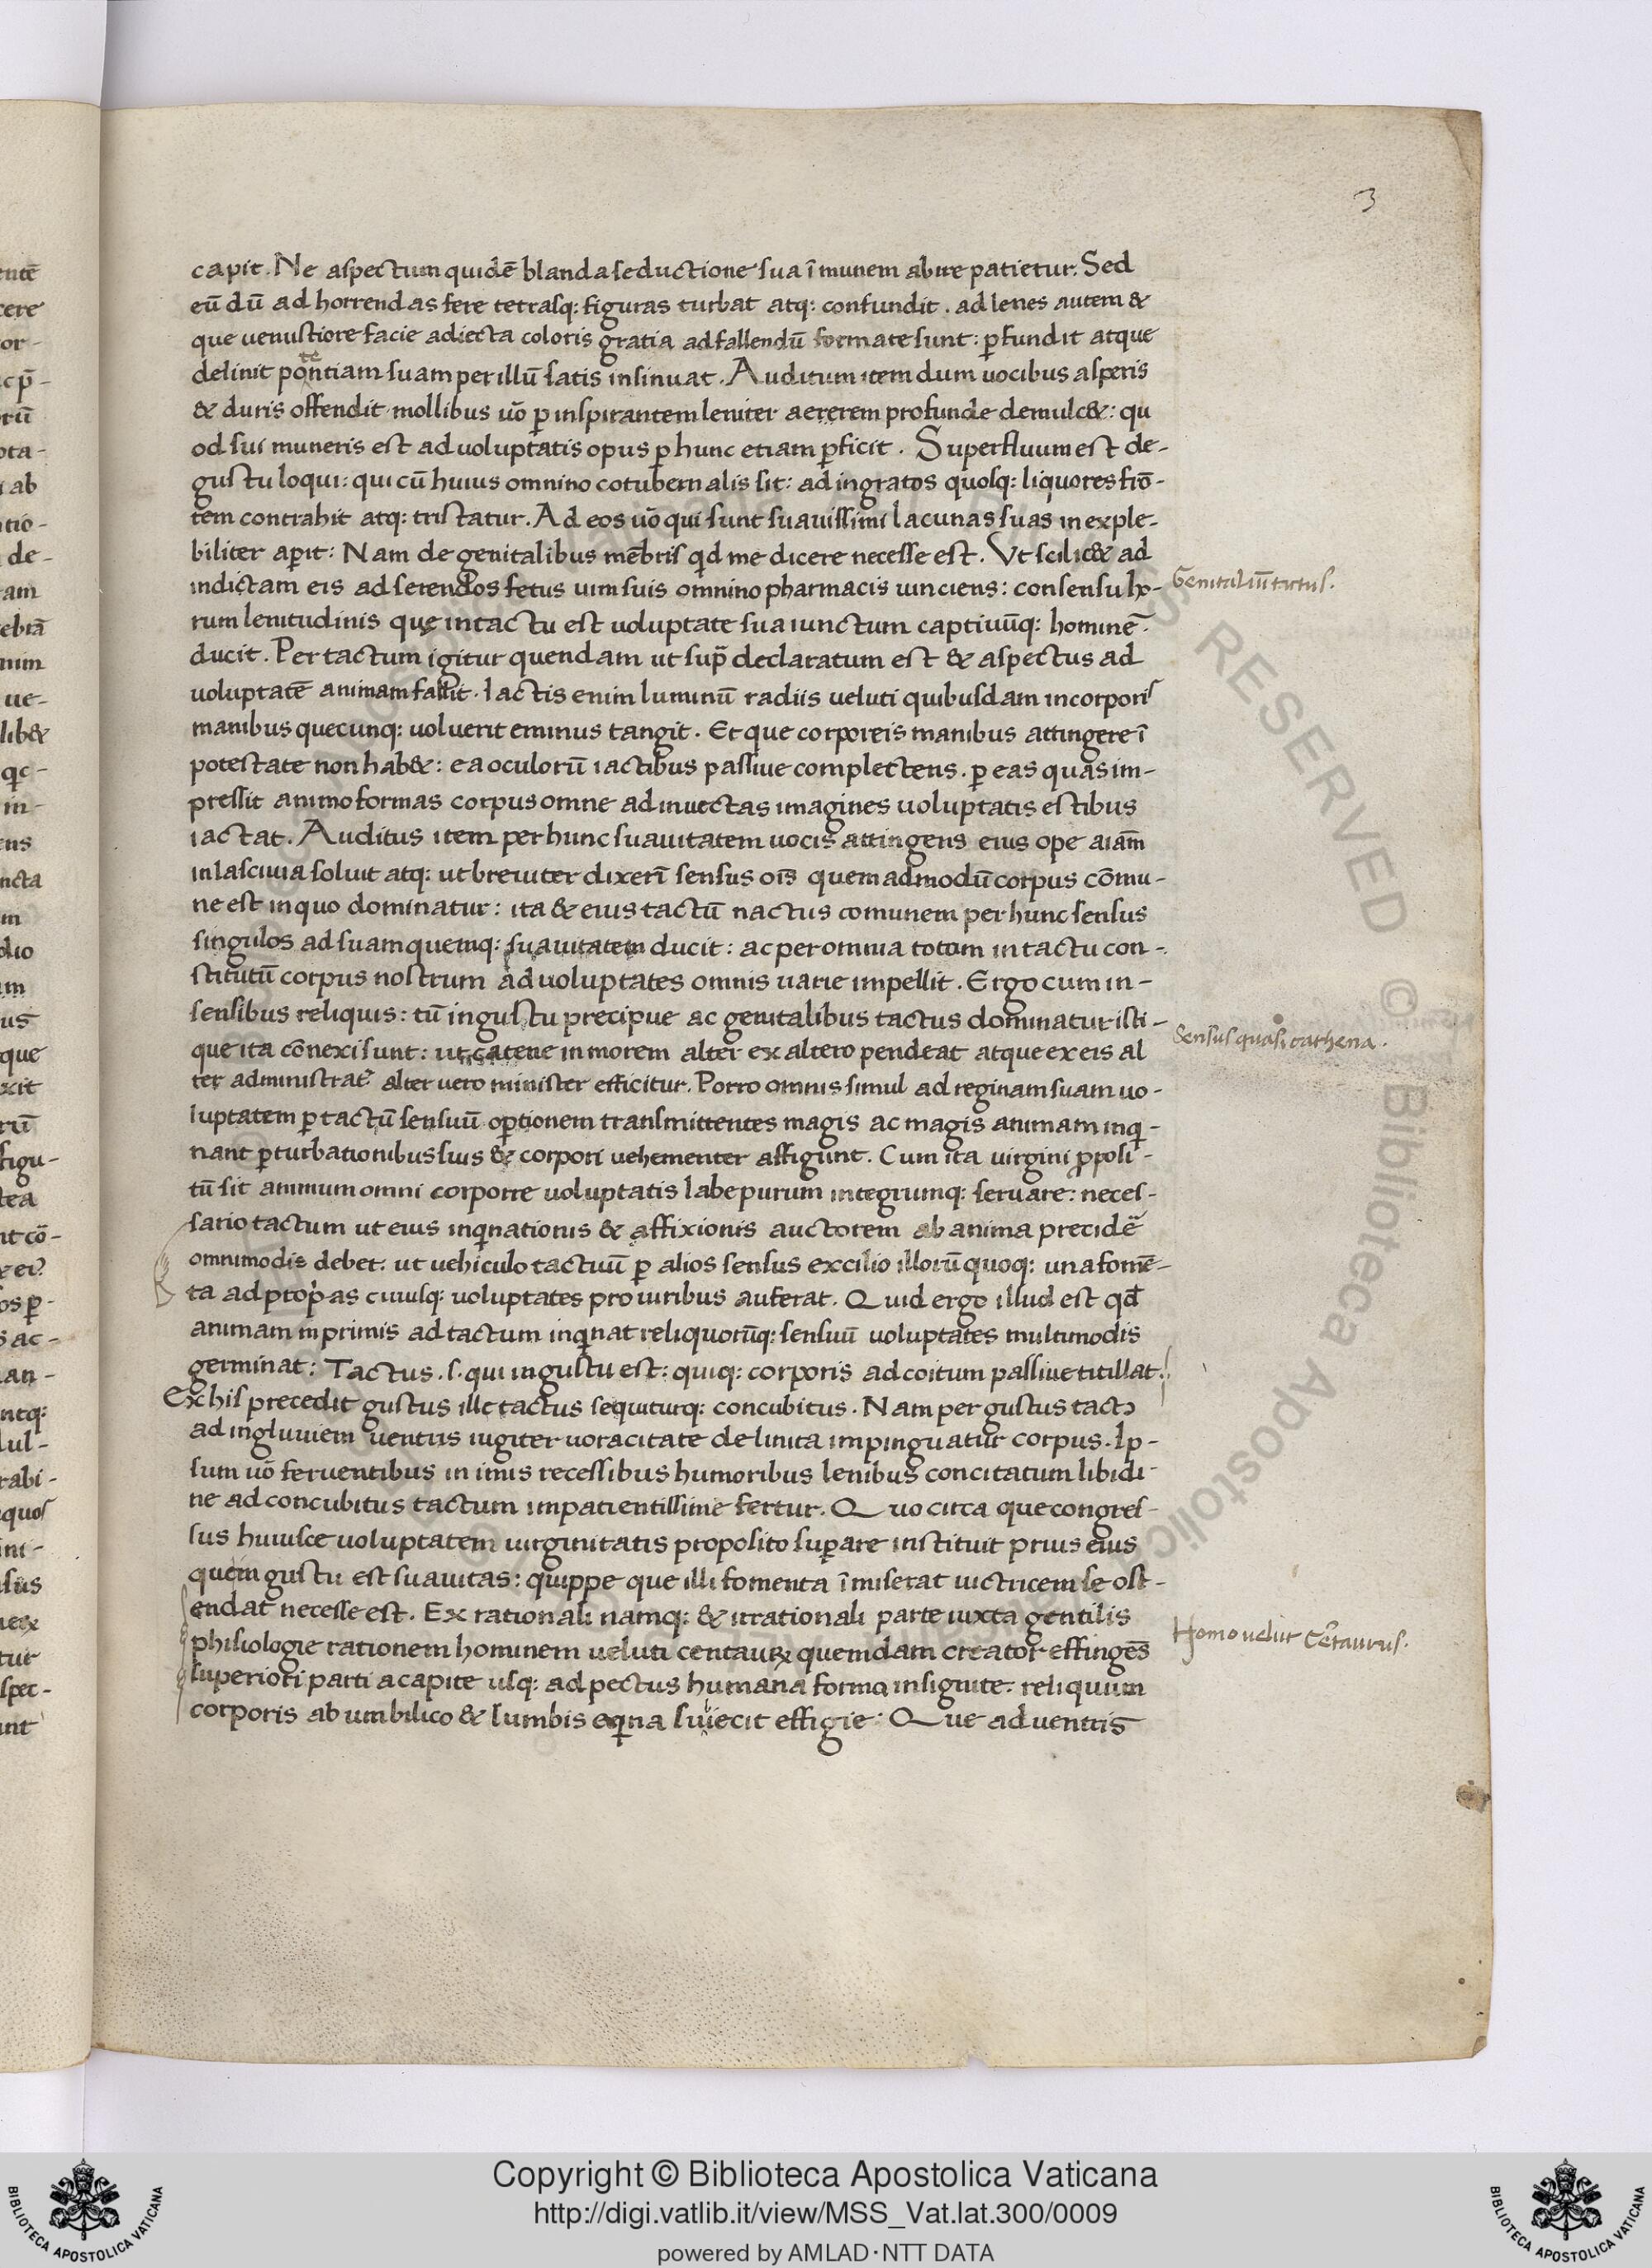 3
capit. Ne aspectum quidē blanda seductione sua ī munem abire patietur. Sed
eū dū ad horrendas fere tetrasq: figuras turbat atq: confundit. ad lenes autem &
que uenustiore facie adiecta coloris gratia ad fallendū formate sunt: ꝑfundit atque
delinit potentiam suam per illū satis insinuat. Auditum item dum uocibus asperis
& duris offendit mollibus uō ꝑ inspirantem leniter aererem profunde demulc&: qu
od sui muneris est ad uoluptatis opus ꝑ hunc etiam ꝑficit. Superfluum est de-
gustu loqui: qui cū huius omnino cotubernalis sit: ad ingratos quosq: liquores frō-
tem contrahit atq: tristatur. Ad eos uō qui sunt suauissimi lacunas suas inexple-
biliter aꝑit: Nam de genitalibus mēbris qd me dicere necesse est. Vt scilic& ad
indictam eis ad serendos fetus uim suis omnino pharmacis iunciens: consensu ho-
rum lenitudinis que in tactu est uoluptate sua iunctum captiuūq: hominē
ducit. Per tactum igitur quendam ut supͣ declaratum est & aspectus ad
uoluptatē animam fallit. Iactis enim luminū radiis ueluti quibusdam incorporis
manibus quecunq: uoluerit eminus tangit. Et que corporeis manibus attingere ī
potestate non hab&: ea oculorū iactibus passiue complectens. ꝑ eas quas im-
pressit animo formas corpus omne ad inuectas imagines uoluptatis estibus
iactat. Auditus item per hunc suauitatem uocis attingens eius ope aiam̄
in lasciuia soluit atq: ut breuiter dixerī sensus oīs quemadmodū corpus cōmu-
ne est in quo dominatur: ita & eius tactū nactus comunem per hunc sensus
singulos ad suam quemq: suauitatem ducit: ac per omnia totum in tactu con-
stitutū corpus nostrum ad uoluptates omnis uarie impellit. Ergo cum in-
sensibus reliquis: tū in gustu precipue ac genitalibus tactus dominatur isti-
que ita cōnexi sunt: ut catene in morem alter ex altero pendeat atque ex eis al
ter administrat alter uero minister efficitur. Porro omnis simul ad reginam suam uo-
luptatem ꝑ tactū sensuū optionem transmittentes magis ac magis animam inqi-
nant ꝑturbationibus suis & corpori uehementer affigunt. Cum ita uirgini ꝓposi-
tū sit animum omni corporre uoluptatis labe purum integrumq: seruare: neces-
sario tactum ut eius inqinationis & affixionis auctorem ab anima precidē
omnimodis debet: ut uehiculo tactuū ꝑ alios sensus excilio illorū quoq: una fomē-
ta ad propͥas cuiusq: uoluptates pro uiribus auferat. Quid ergo illud est qd̄
animam in primis ad tactum inqinat reliquorūq: sensuū uoluptates multimodis
germinat: Tactus. s. qui in gustu est: quiq: corporis ad coitum passiue titillat.
Ex his precedit gustus ille tactus sequiturq: concubitus. Nam per gustus tactꝰ
ad ingluuiem uentris iugiter uoracitate delinita impinguatur corpus. Ip-
sum uō feruentibus in imis recessibus humoribus lenibus concitatum libidi-
ne ad concubitus tactum impatientissime fertur. Quo circa que congres-
sus huiusce uoluptatem uirginitatis proposito suꝑare instituit prius eius
que in gustu est suauitas: quippe que illi fomenta īmiserat uictricem se ost-
endat necesse est. Ex rationali namq: & irrationali parte iuxta gentilis
phisiologie rationem hominem ueluti centauꝝ quemdam creator effingēs
superiori parti a capite usq: ad pectus humana forma insignite. reliquum
corporis ab umbilico & lumbis eqina suiecit effigie. Que ad uentris
Genitaliū tactus.
Sensus quasi cathena.
Homo uelut Cētaurus.
RESERVED © Biblioteca Apostolica
Copyright © Biblioteca Apostolica Vaticana
http://digi.vatlib.it/view/MSS_Vat.lat.300/0009
powered by AMLAD·NTT DATA
BIBLIOTECA APOSTOLICA VATICANA
BIBLIOTECA APOSTOLICA VATICANA